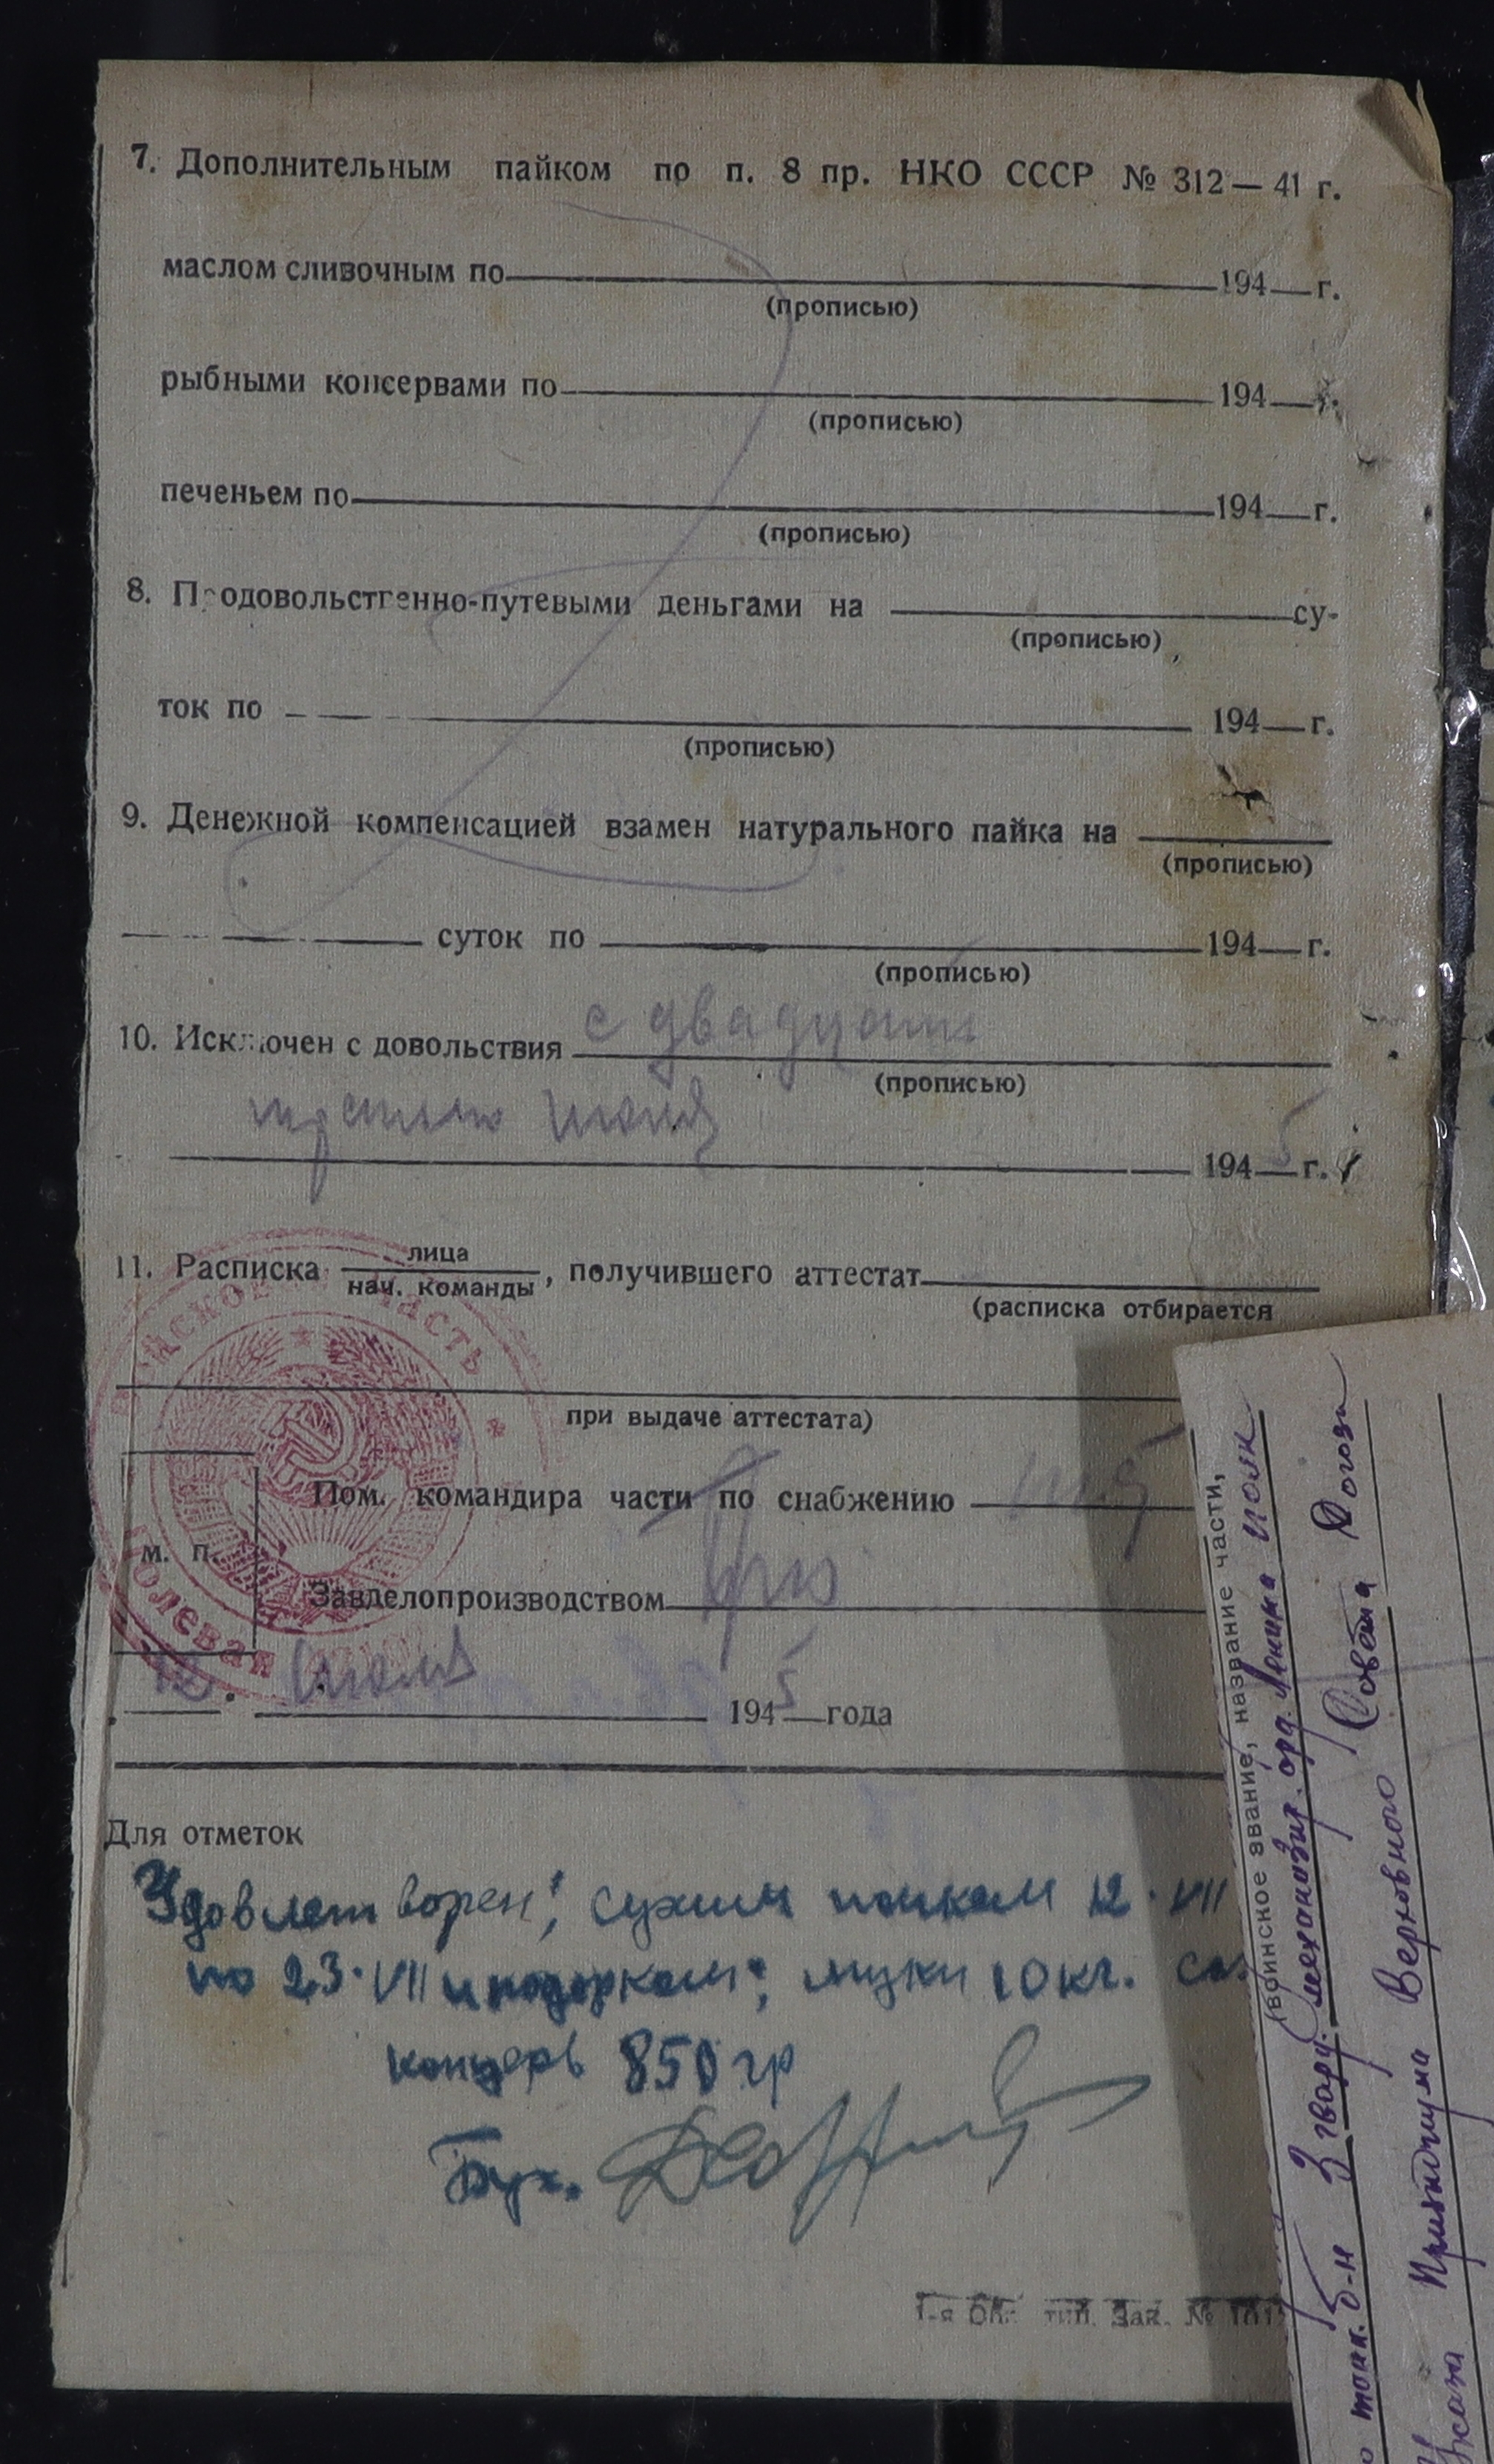 7. Дополнительным пайком по п. 8 пр. НКО СССР № 312—41 г.
маслом сливочным по 194 г.
(прописью)
рыбными консервами по 194 г.
(прописью)
печеньем по 194 г.
(прописью)
8. Продовольственно-путевыми деньгами на су-
(прописью)
ток по 194 г.
(прописью)
9. Денежной компенсацией взамен натурального пайка на
(прописью)
суток по 194 г.
(прописью)
10. Исключен с довольствия с двадцать
(прописью)
третьего июля 1945 г.
11. Расписка лица
нач. команды, получившего аттестат
(расписка отбирается
при выдаче аттестата)
Войсковая часть
Полевая
Пом. командира части по снабжению
м. п.
Завделопроизводством
12. Июля 1945 года
Для отметок
Удовлетворен: сухим пайком 12.VII
по 23.VII и подарком: муки 10 кг. сах
концерв 850 гр
Бух.
1-я Обр. тип. Зак. №
(воинское звание, название части,
танк. б-н 3 гвард. механизир. орд. Ленина полк
Указа Президиума Верховного Совета